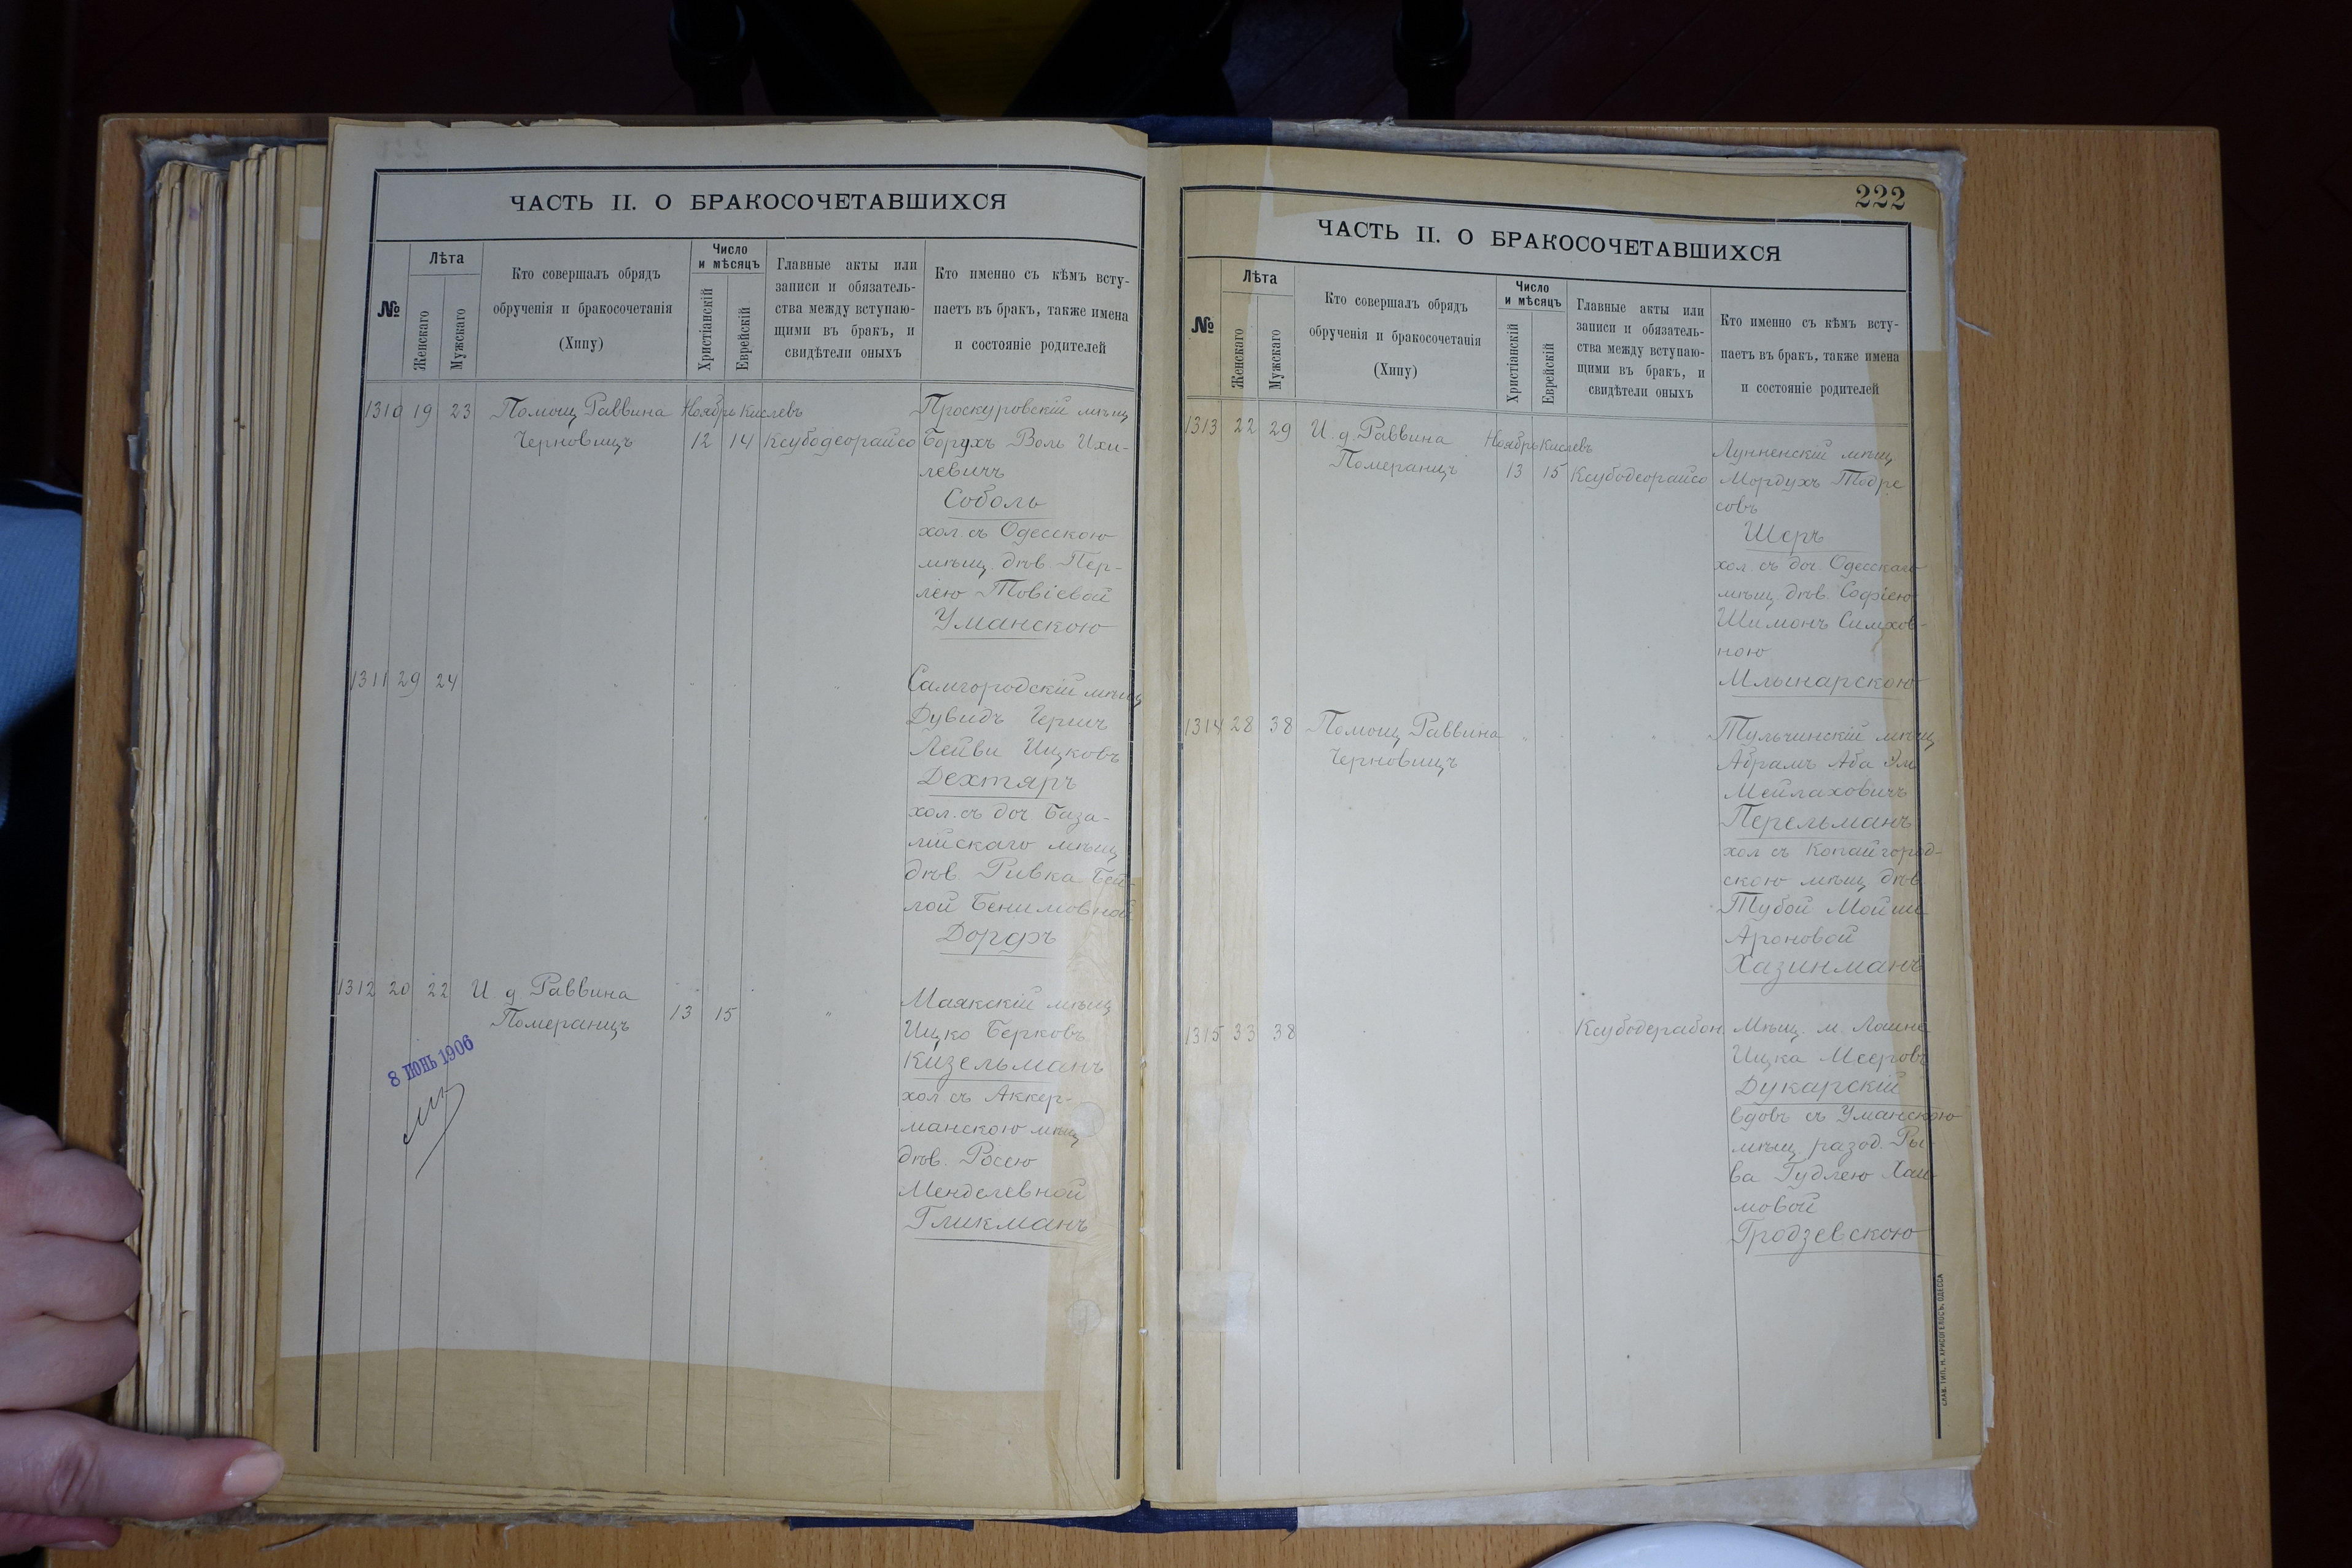 ЧАСТЬ II. О БРАКОСОЧЕТАВШИХСЯ
№
Лѣта
Женскаго
Мужскаго
Кто совершалъ обрядъ
обрученія и бракосочетанія
(Хипу)
Число
и мѣсяцъ
Христіанскій
Еврейскій
Главные акты или
записи и обязатель-
ства между вступаю-
щими въ бракъ, и
свидѣтели оныхъ
Кто именно съ кѣмъ всту-
паетъ въ бракъ, также имена
и состояніе родителей
1310 19 23 Помощ Раввина Ноябрь Кислевъ Проскуровскій мѣщ
Черновицъ 12 14 Ксубодеорайсо Борухъ Воль Ихи-
левичъ
Соболь
хол. съ Одесскою
мѣщ. дѣв. Пер-
лею Товіевой
Уманскою
1311 29 24 " " Самгородскій мѣщ
Дувидъ Гершъ
Лейви Ицковъ
Дехтяръ
хол. съ доч. База-
лійскаго мѣщ
дѣв. Ривка Бей-
лой Бенимовной
Дорфъ
1312 20 22 И. д Раввина Маякскій мѣщ
Померанцъ 13 15 " Ицко Берковъ
Кизельманъ
хол съ Аккер-
манскою мѣщ
дѣв. Росею
Менделевной
Гликманъ
8 ІЮНЬ 1906
222
ЧАСТЬ II. О БРАКОСОЧЕТАВШИХСЯ
№
Лѣта
Женскаго
Мужскаго
Кто совершалъ обрядъ
обрученія и бракосочетанія
(Хипу)
Число
и мѣсяцъ
Христіанскій
Еврейскій
Главные акты или
записи и обязатель-
ства между вступаю-
щими въ бракъ, и
свидѣтели оныхъ
Кто именно съ кѣмъ всту-
паетъ въ бракъ, также имена
и состояніе родителей
1313 22 29 И. д. Раввина Ноябрь Кислевъ Лунненскій мѣщ
Померанцъ 13 15 Ксубодеорайсо Мордухъ Тодре
совъ
Шеръ
хол. съ доч. Одесскаго
мѣщ. дѣв. Софіею
Шимонъ Симхов-
ною
Млынарскою
1314 28 38 Помощ Раввина Тульчинскій мѣщ
Черновицъ Абрамъ Аба Эль
Мейлаховичъ
Перельманъ
хол съ Копайгород-
скою мѣщ дѣв
Тубой Мойше
Ароновой
Хазинманъ
1315 33 38 Ксубодерабон Мѣщ. м.
Ицка Мееровъ
Дукарскій
вдовъ съ Уманскою
мѣщ развод. Ры-
ва Гудлею Хаи-
мовой
Гродзевскою
СЛАВ. ТИП. Н. ХРИСОГЕЛОСЪ, ОДЕССА